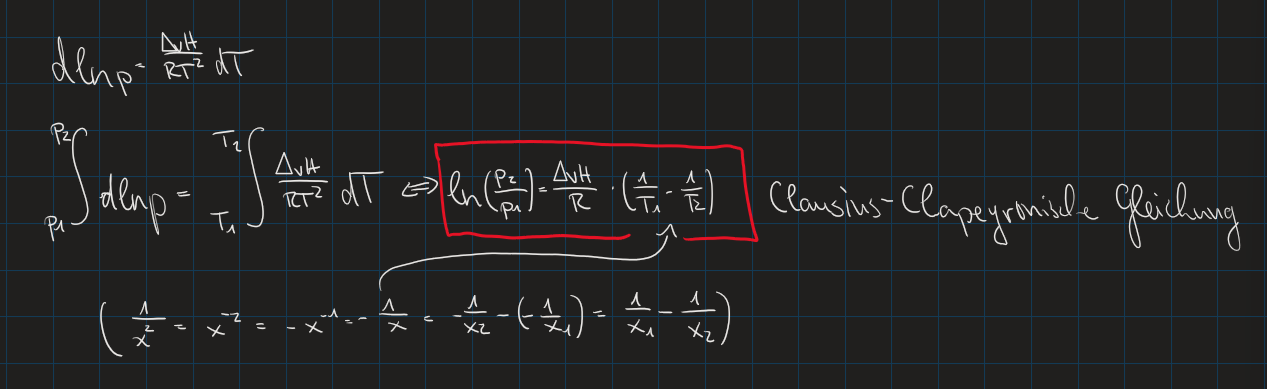 dlnp = ΔvH/RT² dT
∫_{p1}^{p2} dlnp = ∫_{T1}^{T2} ΔvH/RT² dT ⇔ ln(p2/p1) = ΔvH/R · (1/T1 - 1/T2) Clausius-Clapeyronische Gleichung
(1/x² = x⁻² = -x⁻¹ = -1/x = -1/x2 - (-1/x1) = 1/x1 - 1/x2)